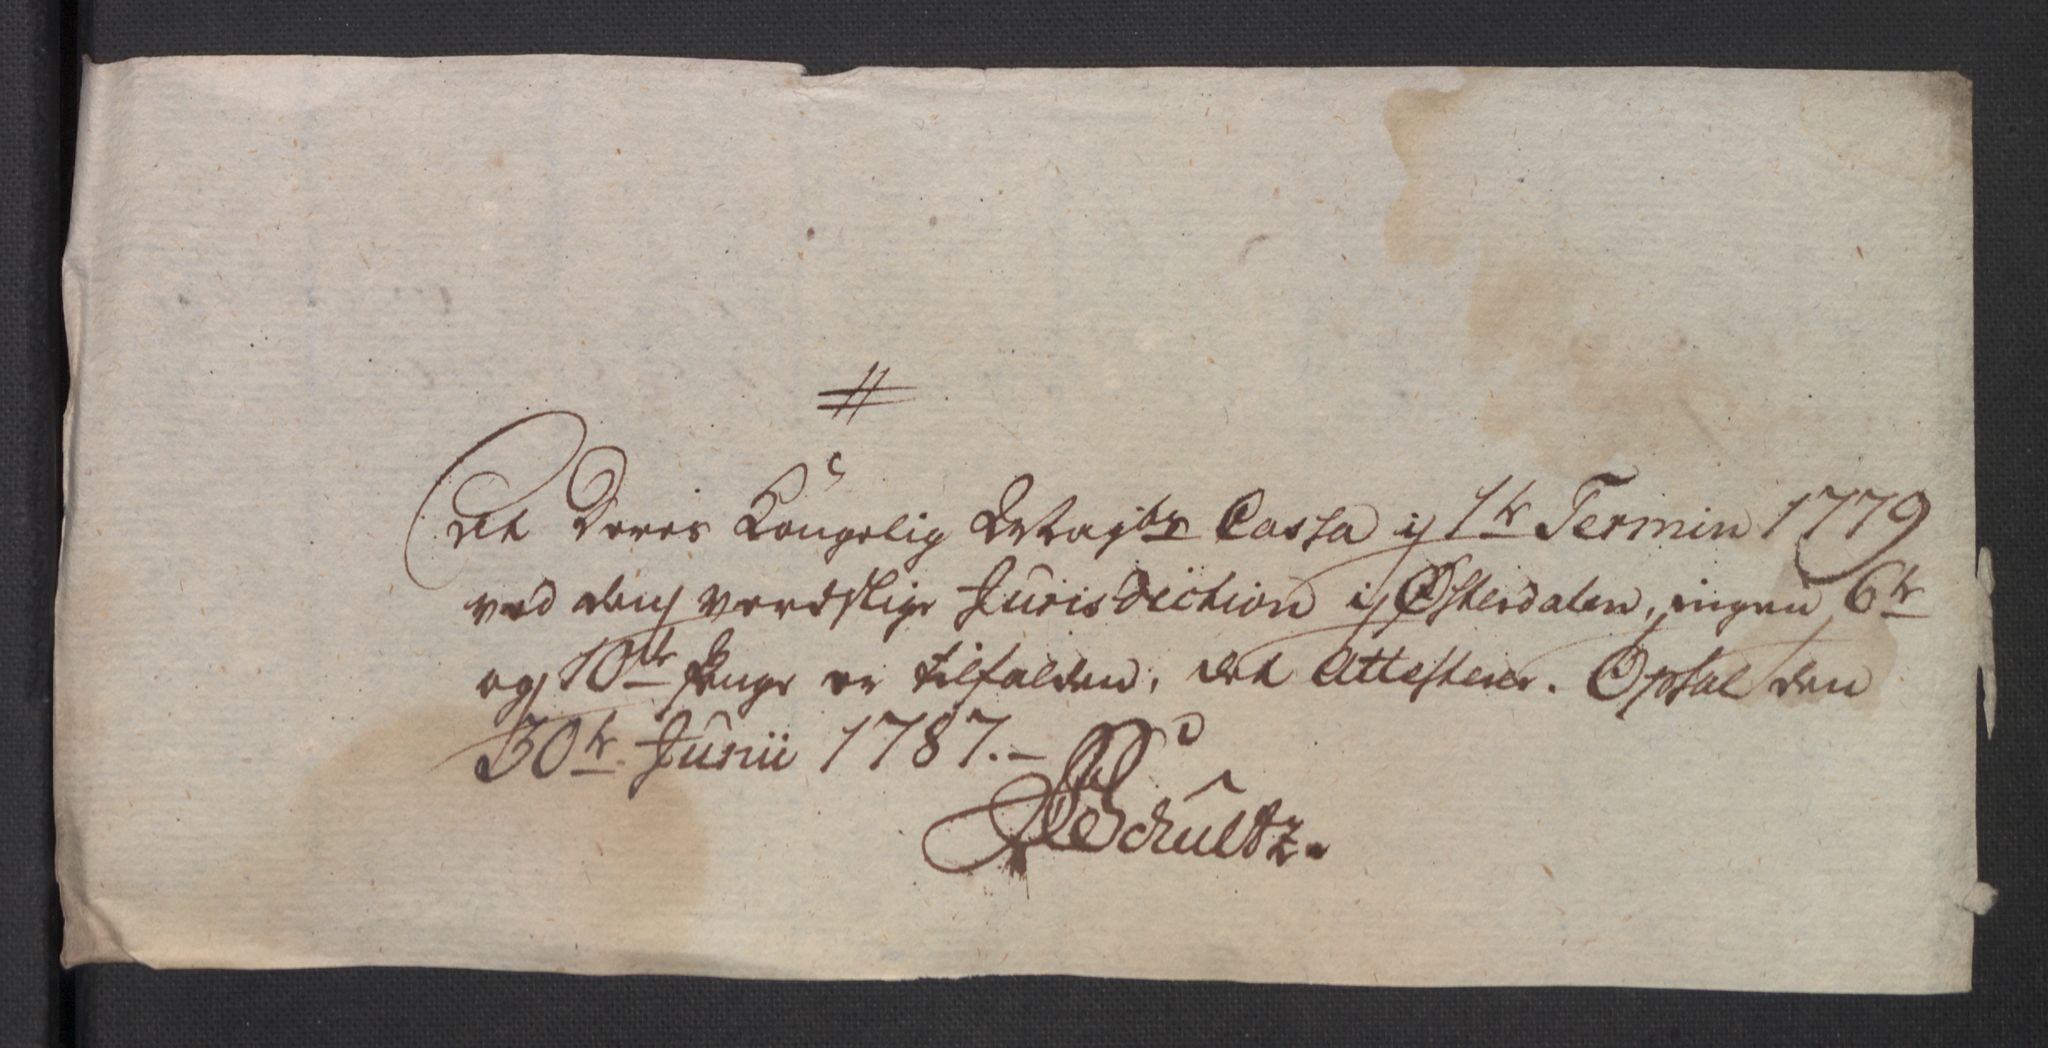 At Deres Kongelig Mayts Cassa i 1te Termin 1779
ved den verdslige Jurisdiction i Østerdalen, ingen 6te
og 10te Penge er tilfalden, det Attesteres. Opsal den
30te Junii 1787.-
Schultz.